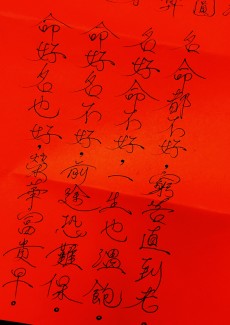 命好名也好，榮華富貴早。
命好名不好，前途恐難保。
名好命不好，一生也溫飽。
名命都不好，窮苦直到老。